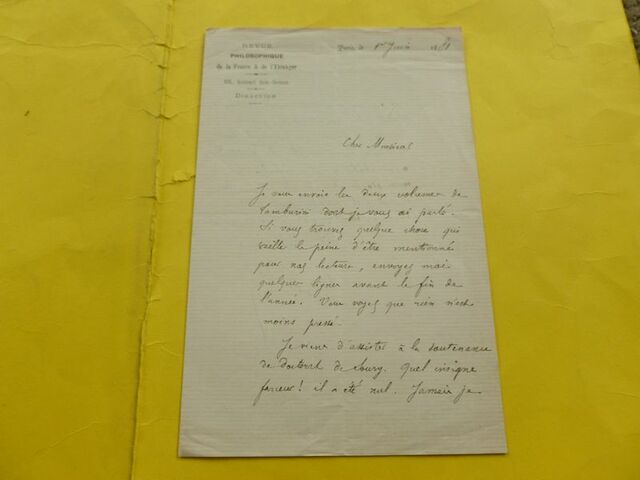 REVUE
PHILOSOPHIQUE
de la France & de l'Étranger
DIRECTION
Paris, le 1er Juin 1881
Cher Monsieur
Je vous envoie les deux volumes de
Tamburini dont je vous ai parlé.
Si vous trouvez quelque chose qui
vaille la peine d'être mentionné
pour nos lecteurs, envoyez moi
quelques lignes avant la fin de
l'année. Vous voyez que rien n'est
moins pressé.
Je viens d'assister à la soutenance
de doctorat de Soury. Quel insigne
farceur! il a été nul. Jamais je